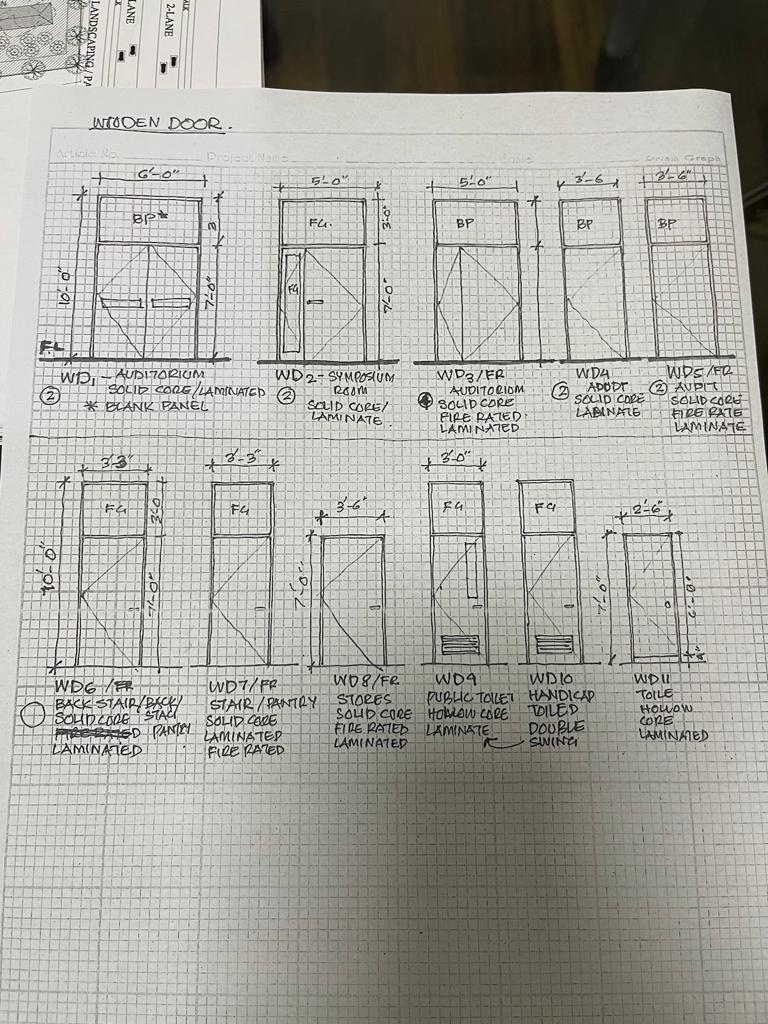 LANDSCAPING / PA
LANE
2-LANE
WOODEN DOOR.
Article No.
Project Name
6'-0"
5'-0"
5'-0"
3'-6
3'-6"
BP*
3
FG.
3'-0"
BP
BP
BP
10'-0"
7'-0"
FG
7'-0"
FL
WD1 - AUDITORIUM
SOLID CORE/LAMINATED
* BLANK PANEL
2
WD2 - SYMPOSIUM
ROOM
SOLID CORE/
LAMINATE.
2
WD3/FR
AUDITORIUM
SOLID CORE
FIRE RATED.
LAMINATED
WD4
SOLID CORE
LABINATE
2
WD5/FR
AUDIT
SOLID CORE
FIRE RATE
LAMINATE
2
3'3"
3'-3"
3'-6"
3'-0"
2'-6"
FG
3'-0
FG
FG
FG
10'-0"
7'-0"
7'-0"
7'-0"
6'-8"
4"
WD6 /FR
BACK STAIR/BACK/
SOLID CORE STAG
FIRE RATED PANTRY
LAMINATED
WD7/FR
STAIR/PANTRY
SOLID CORE
LAMINATED
FIRE RATED
WD8/FR
STORES
SOLID CORE
FIRE RATED
LAMINATED
WD9
PUBLIC TOILET
HOLLOW CORE
LAMINATE
WD10
HANDICAP
TOILED
DOUBLE
SWING
WD11
TOILE
HOLLOW
CORE
LAMINATED